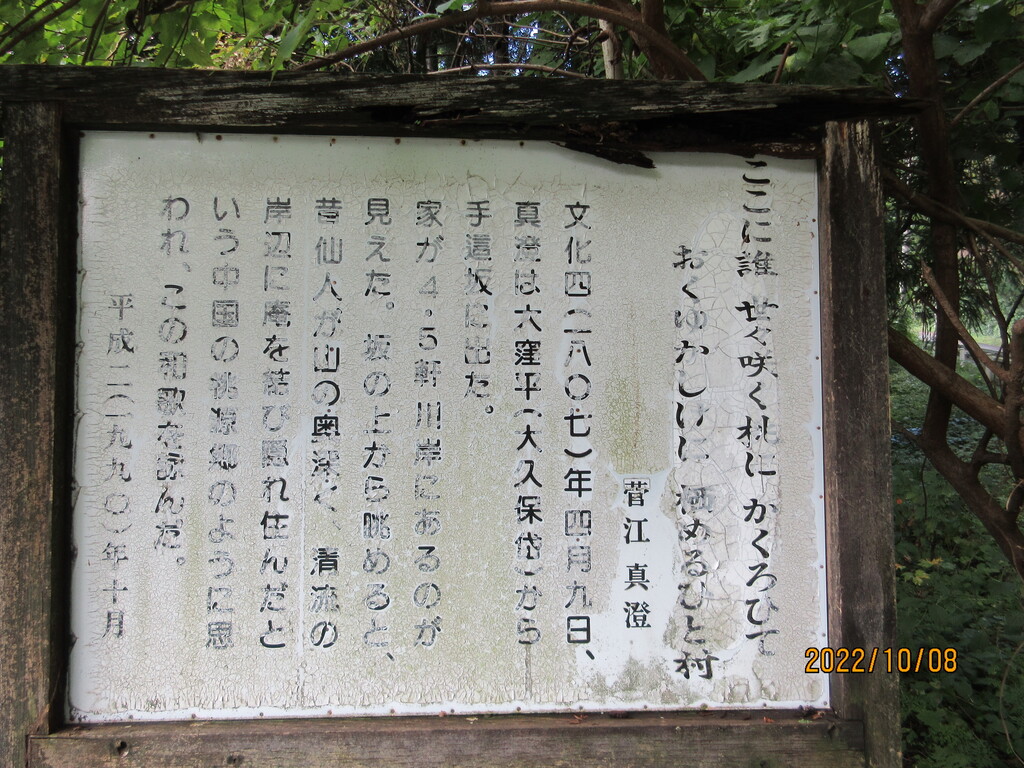 ここに誰 世々咲く桃に かくろひて
おくゆかしげに 栖めるひと村
菅江真澄
文化四(一八〇七)年四月九日、
真澄は大窪平(大久保岱)から
手這坂に出た。
家が4・5軒川岸にあるのが
見えた。坂の上から眺めると、
昔仙人が山の奥深く、清流の
岸辺に庵を結び隠れ住んだと
いう中国の桃源郷のように思
われ、この和歌を詠んだ。
平成二(一九九〇)年十月
2022/10/08